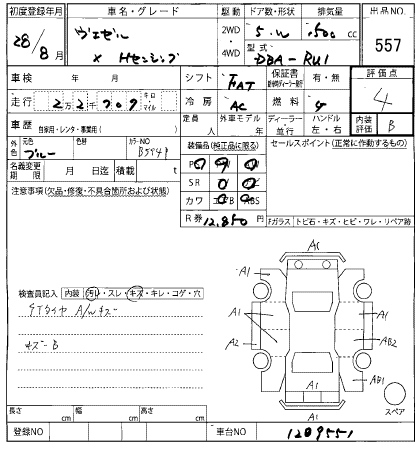 初度登録年月
車名・グレード
駆動
ドア数・形状
排気量
出品NO
28/8月
ヴェゼル
X Hセンシング
2WD
・
4WD
5.W
1500cc
型式
DBA-RU1
557
車検
年 月
シフト
FAT
保証書
有・無
評価点
4
走行
2万2千709キロ
マイル
冷房
AC
燃料
ガ
車歴
自家用・レンタ・事業用( )
定員
人
外車モデル
年
ディーラー
・
並行
ハンドル
左・右
内装
評価
B
外色
元色
ブルー
色替
カラーNO
B594M
装備品(純正品に限る)
セールスポイント(正常に作動するもの)
名義変更
期限
月 日迄
積載
t
SR
カワ
ABS
R券
12,850円
注意事項(欠品・修復・不具合箇所および状態)
Fガラス
トビ石・キズ・ヒビ・ワレ・リペア跡
検査員記入
内装
汚れ・スレ・キズ・キレ・コゲ・穴
STタイヤ A/Wキズ
キズーB
A1
A1
A1
A1
A1
A2
AB2
A1
AB1
A1
スペア
長さ
cm
幅
cm
高さ
cm
登録NO
車台NO
1209551